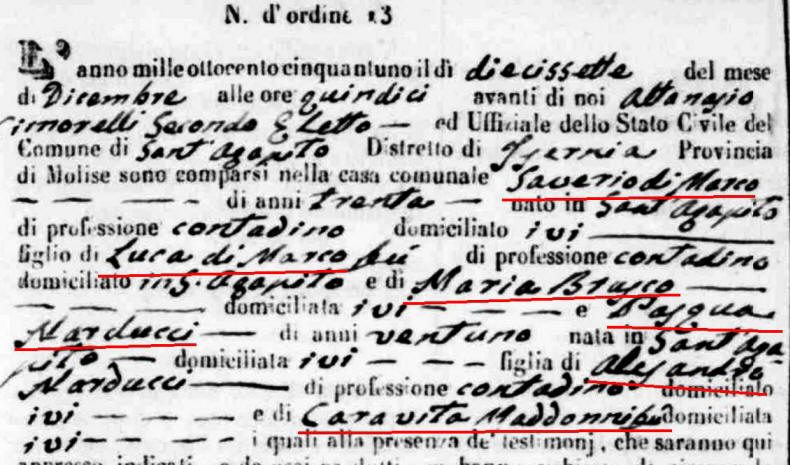 N. d'ordine 13
L'anno mille ottocento cinquantuno il dì diecissette del mese
di Dicembre alle ore quindici avanti di noi Attanasio
Secondo Eletto — ed Uffiziale dello Stato Civile del
Comune di Sant'Agapito Distretto di Isernia Provincia
di Molise sono comparsi nella casa comunale Saverio di Marco
— — — — di anni trenta — nato in Sant'Agapito
di professione contadino domiciliato ivi ———
figlio di Luca di Marco fu di professione contadino
domiciliato in S. Agapito e di Maria Brasco ———
— — — — domiciliata ivi — — — e Pasqua
Marducci — di anni ventuno nata in Sant'Aga
pito — domiciliata ivi — — — figlia di Alesandro
Marducci —— di professione contadino domiciliato
ivi — — — e di Caravita domiciliata
ivi — — — i quali alla presenza de' testimonj, che saranno qui